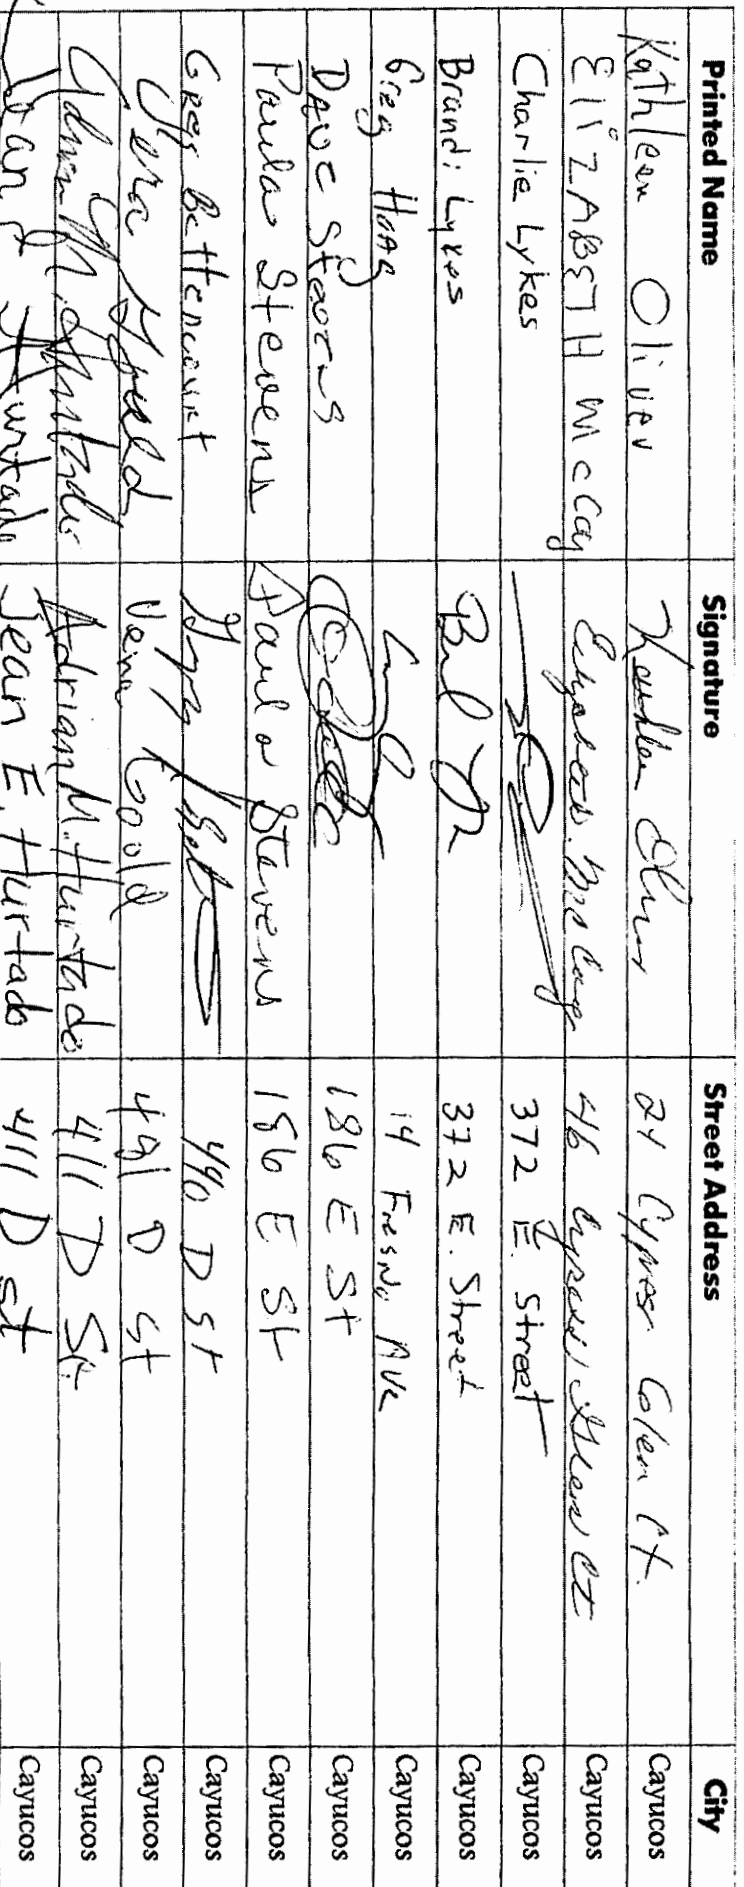 Printed Name Signature Street Address City
Kathleen Oliver Kathleen Oliver 24 Cypress Glen Ct. Cayucos
EliZABETH McCay Elizabeth McCay 46 Cypress Glen Ct Cayucos
Charlie Lykes 372 E. Street Cayucos
Brandi Lykes 372 E. Street Cayucos
Greg Haag 14 Fresno Ave Cayucos
DAVE Stevens 186 E St Cayucos
Paula Stevens Paula Stevens 186 E St Cayucos
Greg Bettencourt 490 D St Cayucos
Vena Gould Vena Goold 491 D St Cayucos
Adrian M. Hurtado Adrian M. Hurtado 411 D St. Cayucos
Jean E. Hurtado Jean E. Hurtado 411 D St Cayucos